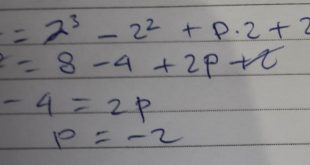 = 2³ - 2² + p.2 + 2
= 8 - 4 + 2p + 2
- 4 = 2p
p = -2